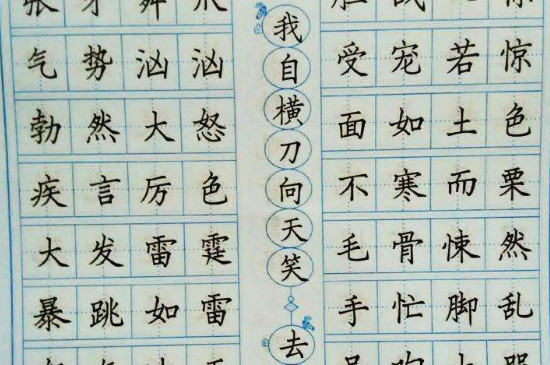 张牙舞爪
气势汹汹
勃然大怒
疾言厉色
大发雷霆
暴跳如雷
我自横刀向天笑
去
受宠若惊
面如土色
不寒而栗
毛骨悚然
手忙脚乱